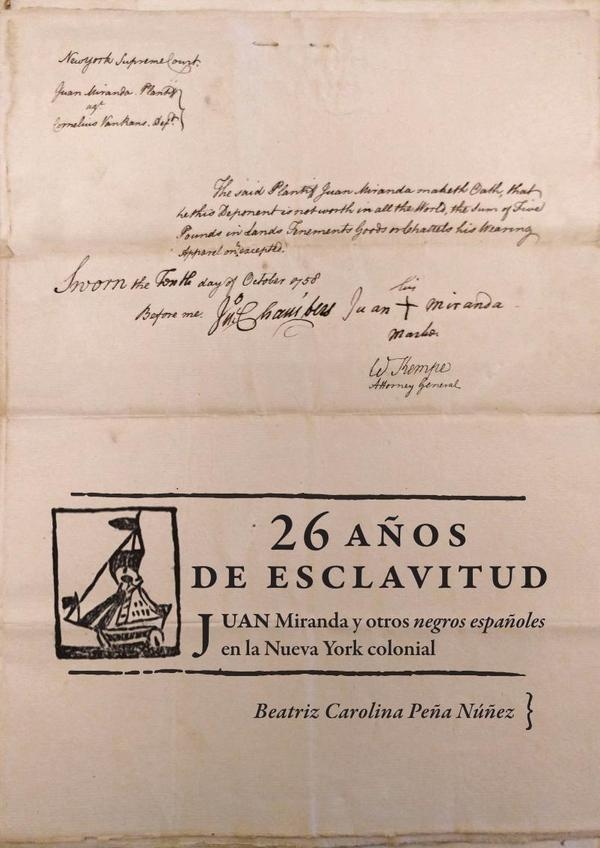 Newyork Supreme Court.
Juan Miranda. Plantif
agt
Cornelius VanRans. Deft.
The said Plantif Juan Miranda maketh Oath, that
he this Deponent is not worth in all the World, the Sum of Five
Pounds in Lands Tenements Goods or Chattels his Wearing
Apparel only excepted.
Sworn the Tenth day of October 1758
Before me. Jno Chambers
his
Juan + Miranda
Marke.
W. Kempe
Attorney General
26 AÑOS
DE ESCLAVITUD
JUAN Miranda y otros negros españoles
en la Nueva York colonial
Beatriz Carolina Peña Núñez }